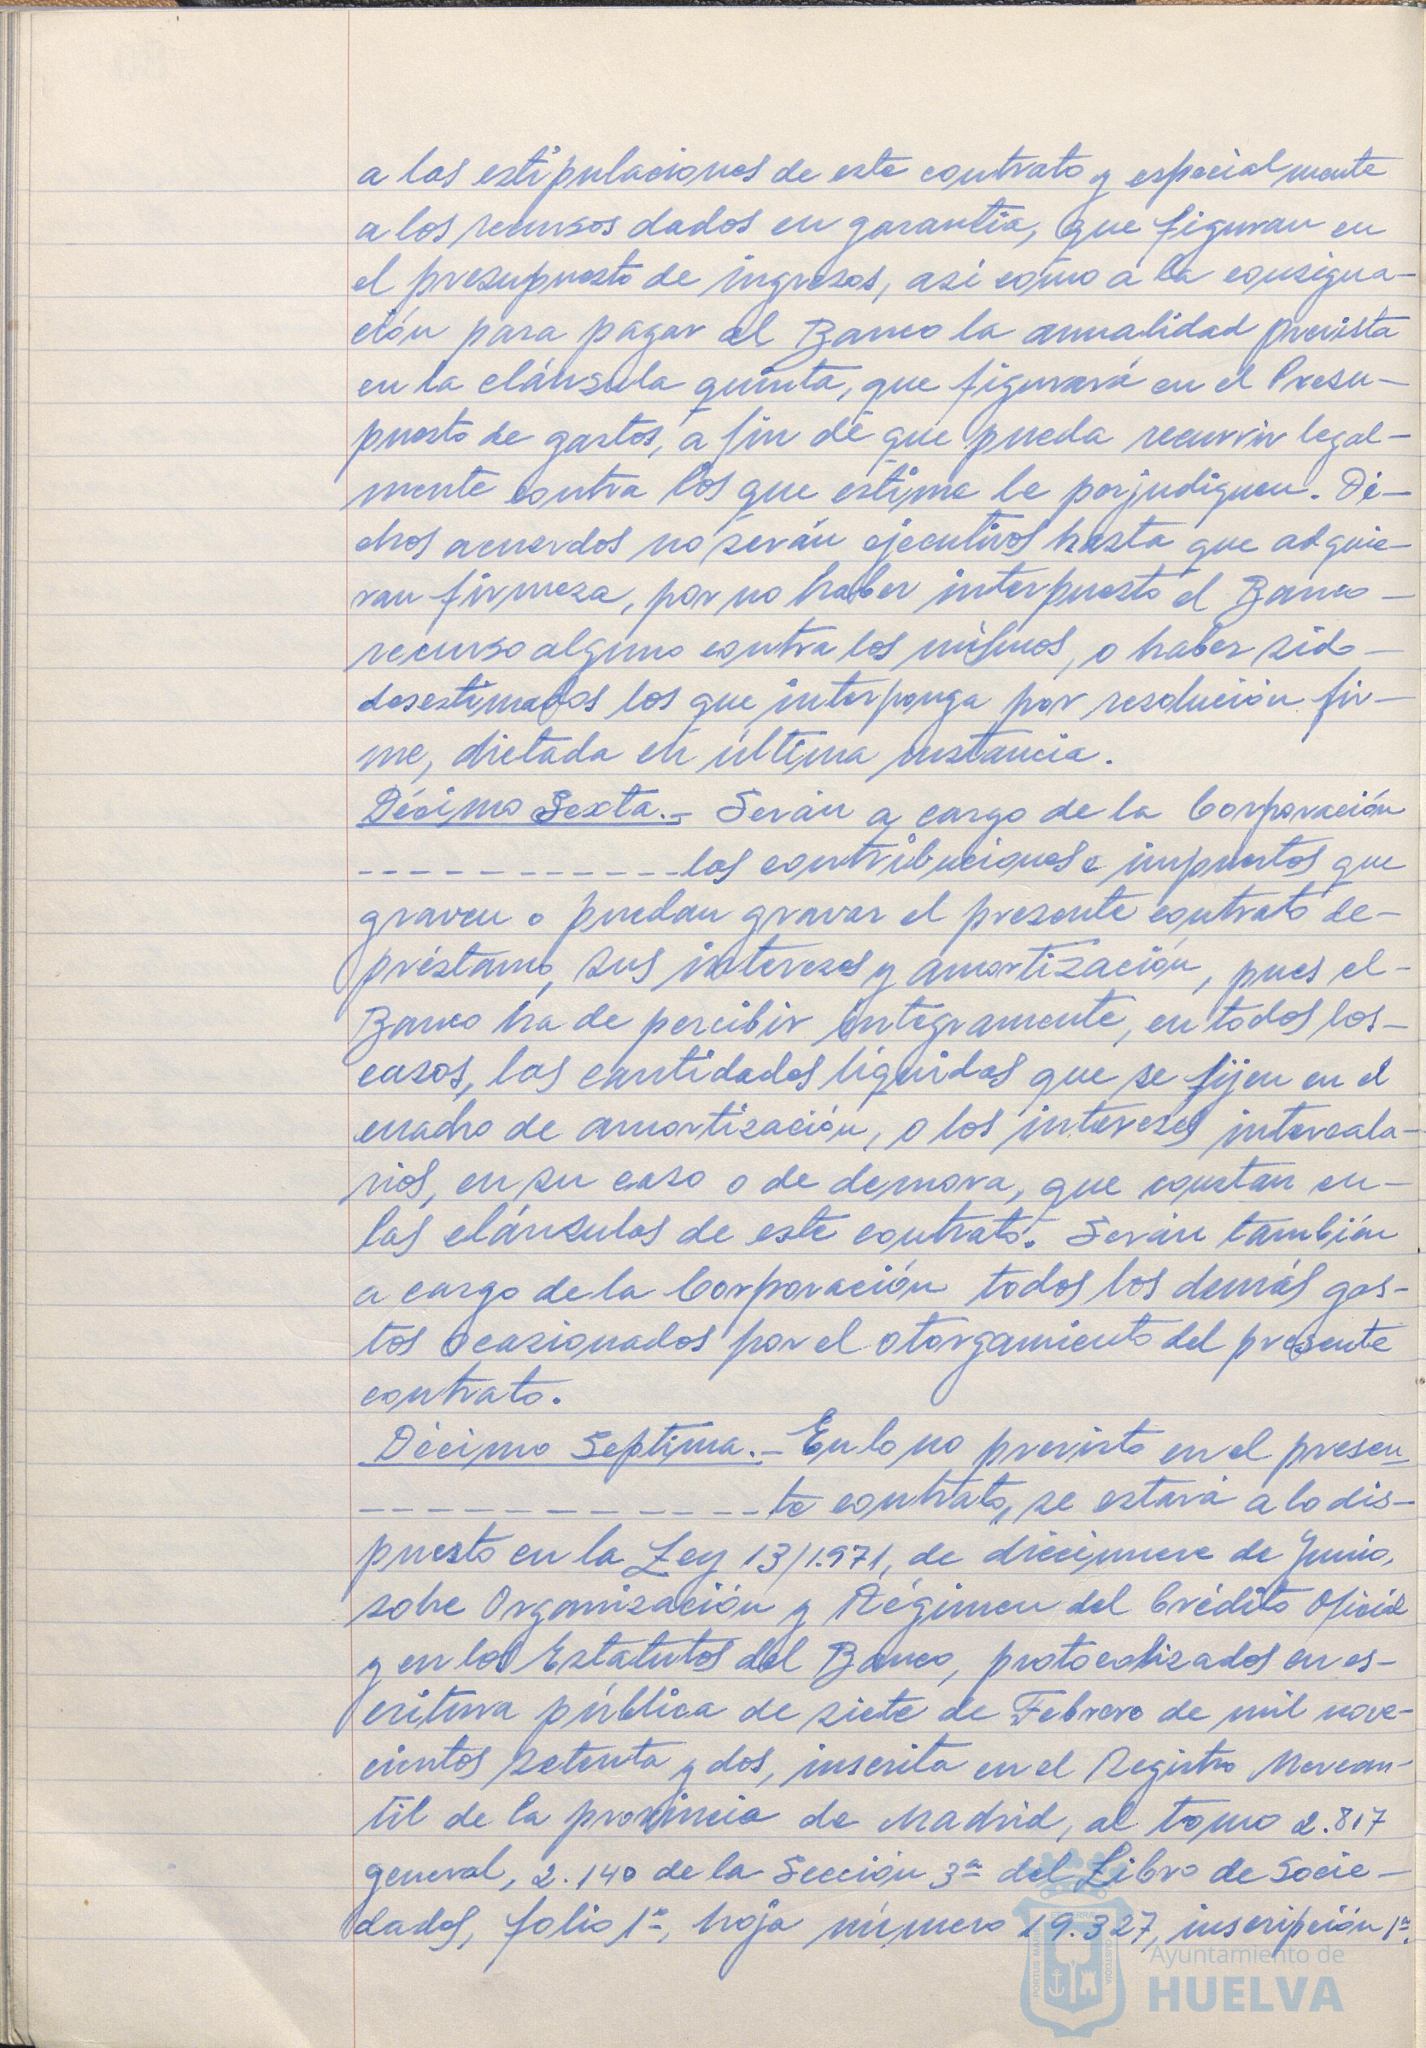 a las estipulaciones de este contrato y especialmente
a los recursos dados en garantía, que figuran en
el presupuesto de ingresos, así como a la consigna-
ción para pagar al Banco la anualidad prevista
en la cláusula quinta, que figurará en el Presu-
puesto de gastos, a fin de que pueda recurrir legal-
mente contra los que estime le perjudiquen. Di-
chos acuerdos no serán ejecutivos hasta que adquie-
ran firmeza, por no haber interpuesto el Banco -
recurso alguno contra los mismos, o haber sido -
desestimados los que interponga por resolución fir-
me, dictada en última instancia.
Décimo Sexta.- Serán a cargo de la Corporación
------------ las contribuciones e impuestos que
graven o puedan gravar el presente contrato de-
préstamo, sus intereses y amortización, pues el -
Banco ha de percibir íntegramente, en todos los-
casos, las cantidades líquidas que se fijen en el
cuadro de amortización, o los intereses intercala-
rios, en su caso o de demora, que constan en-
las cláusulas de este contrato. Serán también
a cargo de la Corporación todos los demás gas-
tos ocasionados por el otorgamiento del presente
contrato.
Décimo Septima.- En lo no previsto en el presen
-------------- te contrato, se estará a lo dis-
puesto en la Ley 13/1.971, de diecinueve de Junio,
sobre Organización y Régimen del Crédito Oficial
y en los Estatutos del Banco, protocolizados en es-
critura pública de siete de Febrero de mil nove-
cientos setenta y dos, inscrita en el Registro Mercan-
til de la provincia de Madrid, al tomo 2.817
general, 2.140 de la Sección 3ª del Libro de Socie-
dades, folio 1º, hoja número 19.327, inscripción 1ª.
PORTUS MARIS ET TERRAE CUSTODIA
Ayuntamiento de
HUELVA